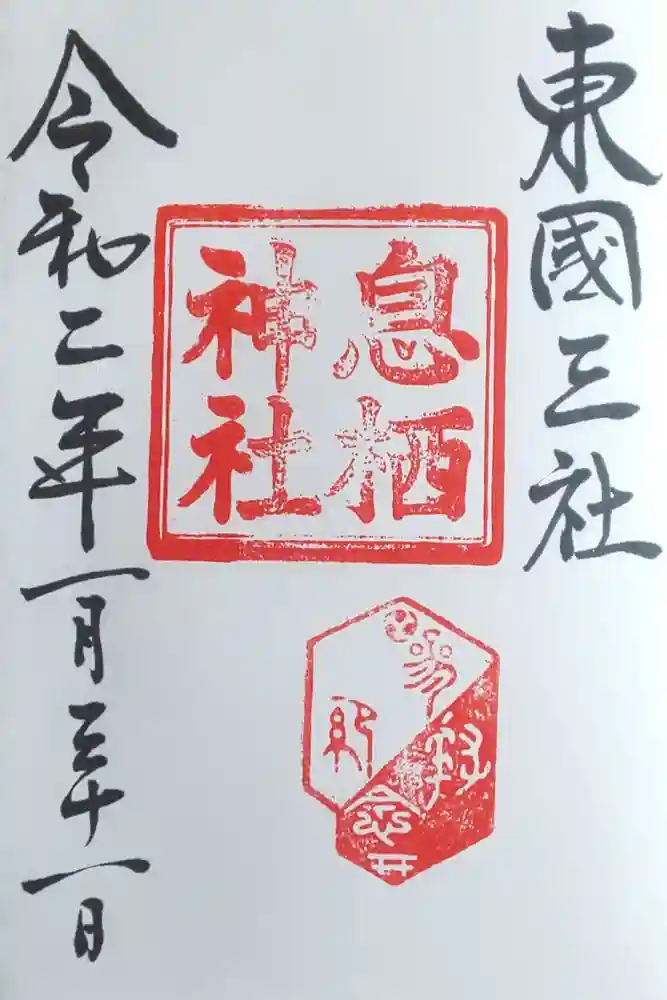 東國三社
息栖
神社
令和二年一月三十一日